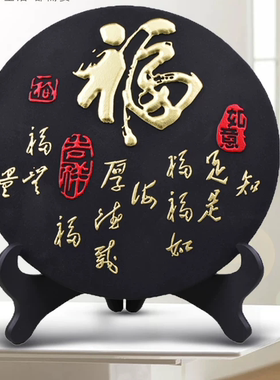 福
如意
知
足是
福福如
海
厚德載
福
福無
量
吉祥
福